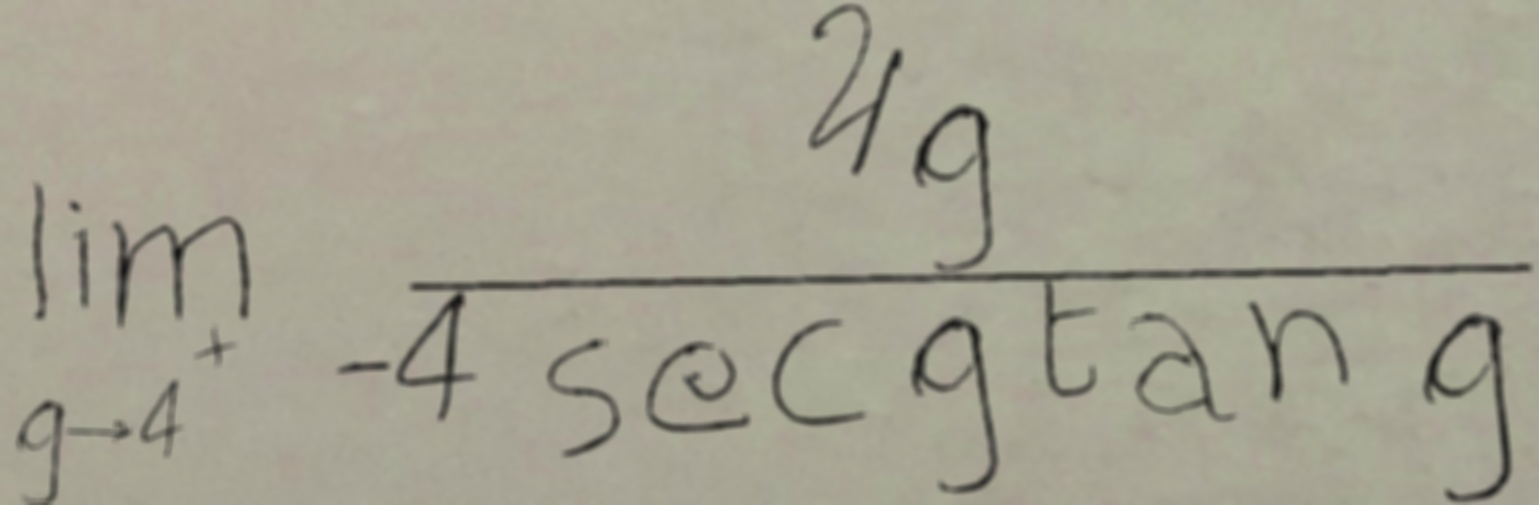 \lim_{g \to 4^+} \frac{21g}{-4 \sec g \tan g}